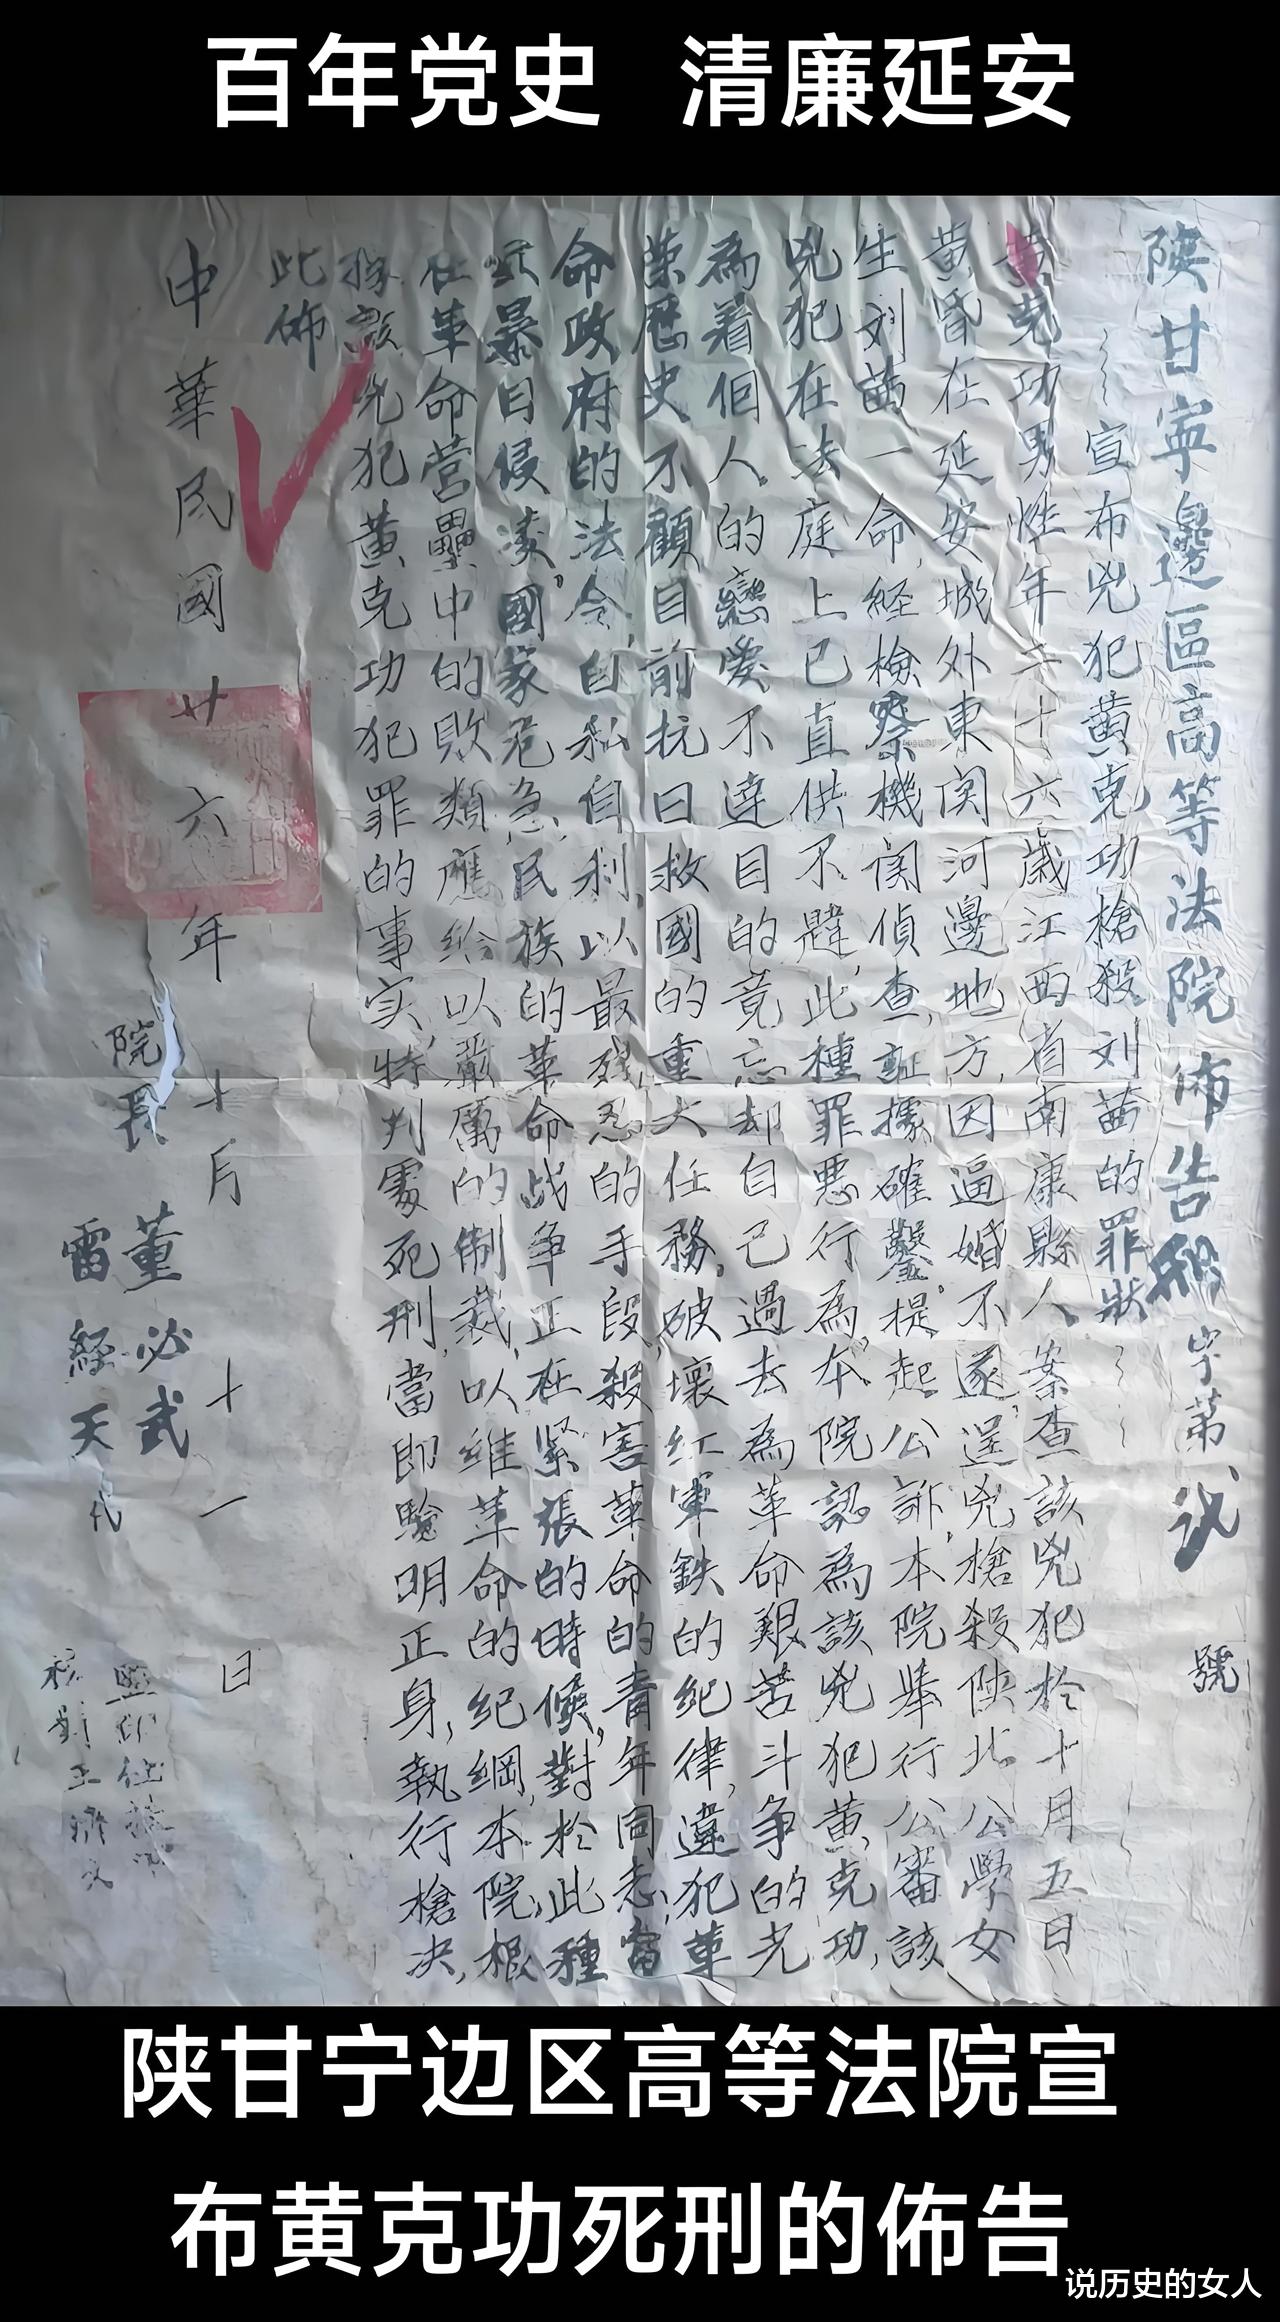 百年党史 清廉延安
陝甘寧邊區高等法院佈告刑字第弍號
宣布兇犯黄克功槍殺刘茜的罪狀
黄克功男性年二十六歲江西省南康縣人案查該兇犯於十月五日
黄昏在延安城外東関河邊地方,因逼婚不遂,逞兇槍殺陝北公學女
生刘茜一命,経檢察機関偵查,証據確鑿,提起公訴,本院舉行公審該
兇犯在法庭上已直供不諱,此種罪悪行為,本院認為該兇犯黄克功,
為着個人的戀愛不達目的竟忘却自己過去為革命艱苦斗争的光
荣歷史不顧目前抗日救國的重大任務,破壞紅軍鉄的紀律,違犯革
命政府的法令,自私自利,以最残忍的手段,殺害革命的青年同志,當
此暴日侵凌,國家危急,民族的革命战争正在紧張的時候,對於此種
在革命營壘中的敗類應給以嚴厲的制裁,以維革命的紀綱,本院,根
據該兇犯黄克功犯罪的事实,特判處死刑,當即驗明正身,執行槍决,
此佈
中華民國廿六年十月十一日
院長 董必武
雷経天代
監印任
核對王
陕甘宁边区高等法院宣
布黄克功死刑的佈告
说历史的女人